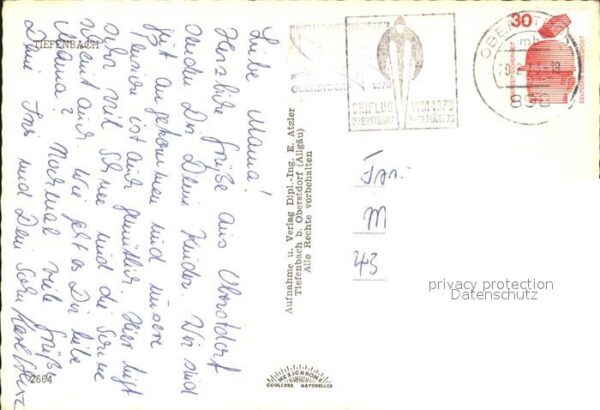 TIEFENBACH
Liebe Mama!
Herzliche Grüße aus Oberstdorf
senden Dir Deine Kinder. Wir sind
gut angekommen und unsere
Pension ist auch gemütlich. Hier liegt
sehr viel Schnee und die Sonne
scheint auch. Wie geht es Dir liebe
Mama? Nochmal viele Grüße
Deine und Dein Sohn Karl Heinz
2664
Aufnahme u. Verlag Dipl.-Ing. E. Atzler
Tiefenbach b. Oberstdorf (Allgäu)
Alle Rechte vorbehalten
MEXICHROME
COULEURS NATURELLES
OBERSTDORF 1973
SKIFLUG WM 1973
OBERSTDORF
MÄRZ 73
30
DEUTSCHE BUNDESPOST
Fam.
M
43
privacy protection
Datenschutz